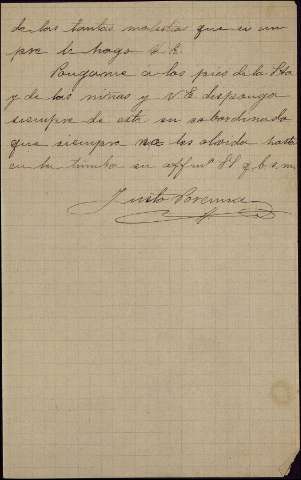 de las tantas molestias que siem
pre le hago V. E.
Pongame a los pies de la Sra
y de las niñas y V. E. dispongo
siempre de este su subordinado
que siempre no los olvida hasta
en la tumba su affmo S. S. q. b. s. m.
Justo